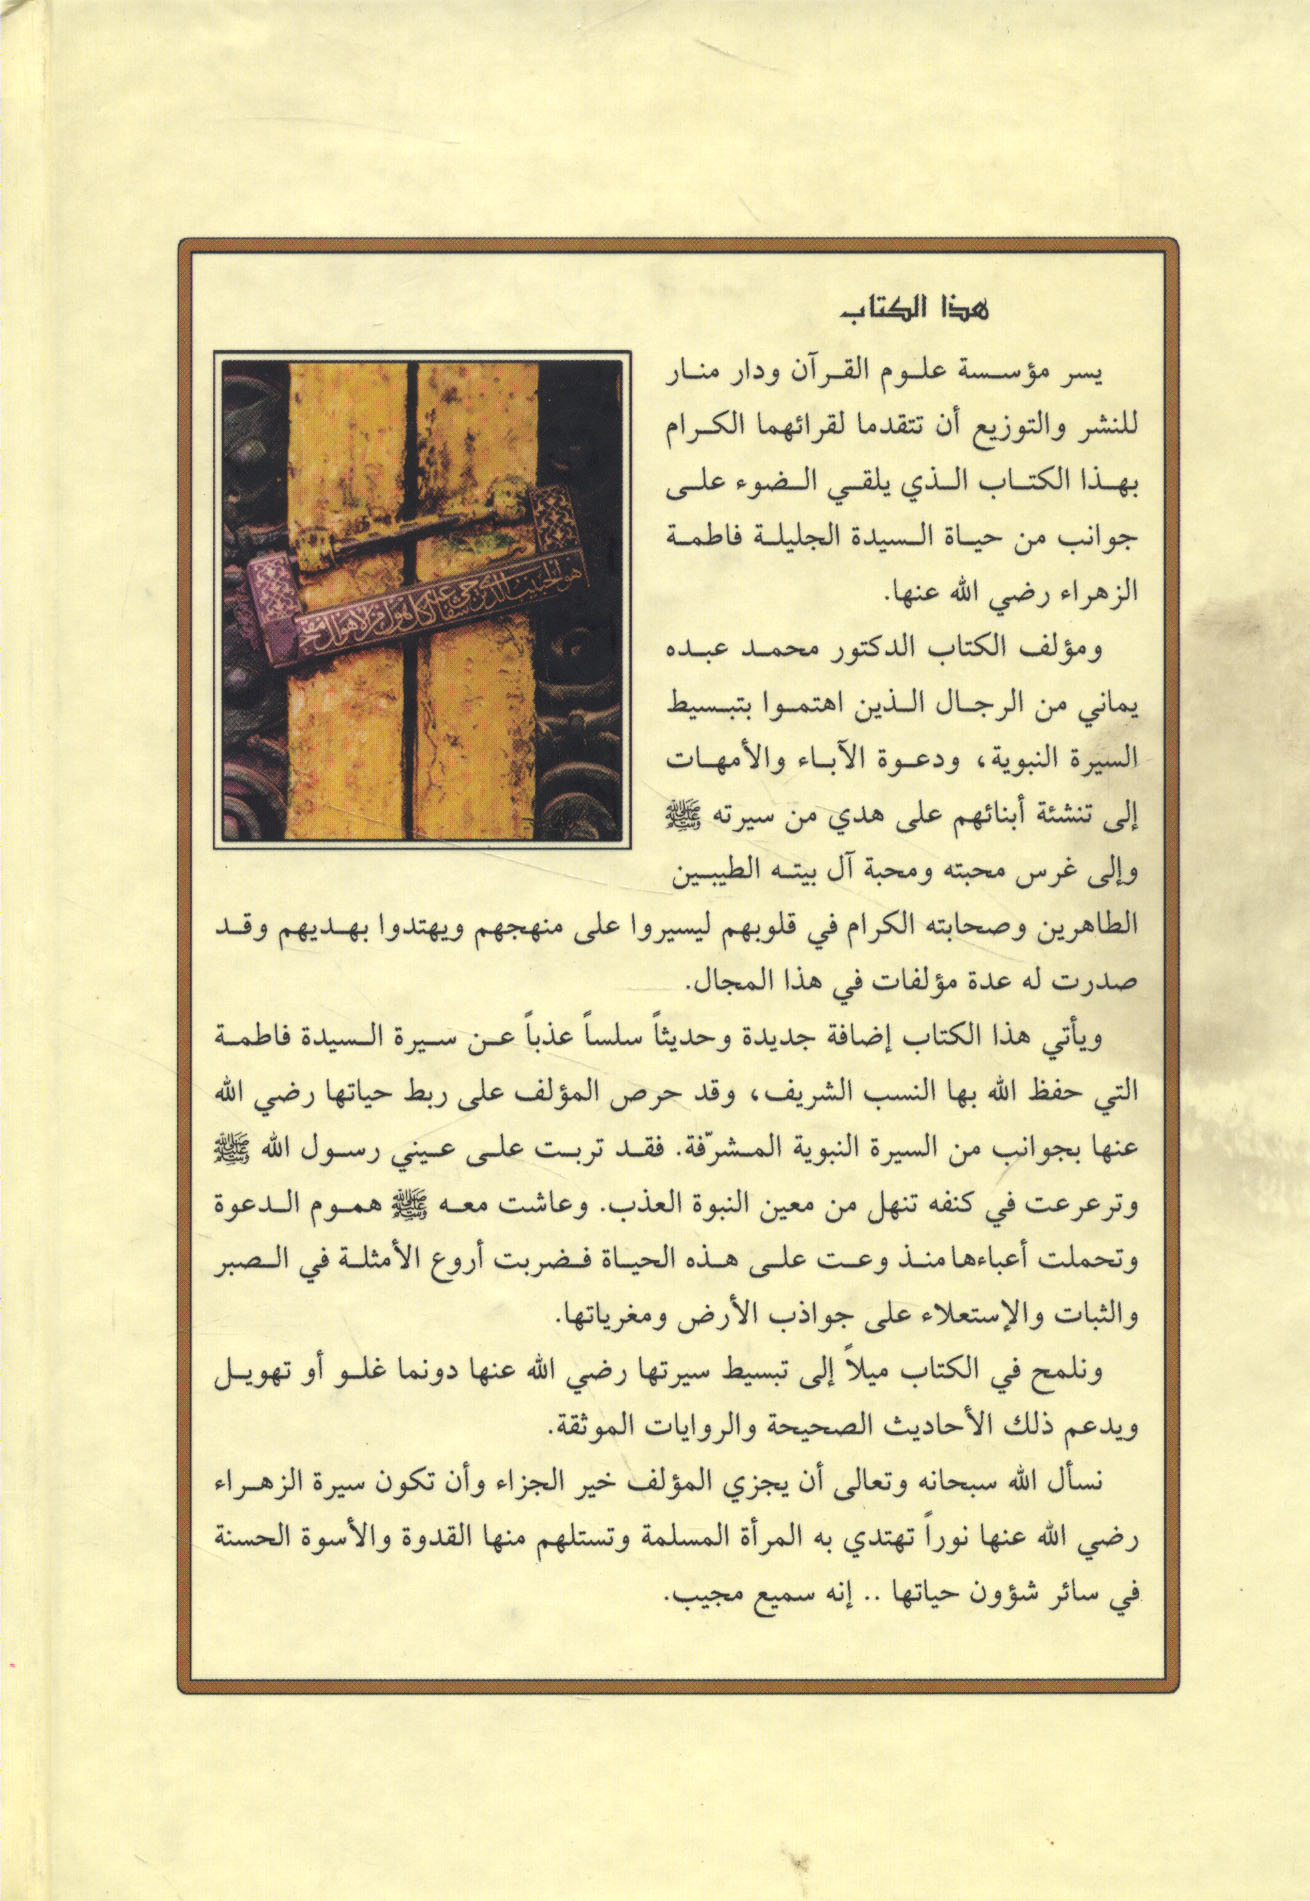 هذا الكتاب
يسر مؤسسة علوم القرآن ودار منار
للنشر والتوزيع أن تتقدما لقرائهما الكرام
بهذا الكتاب الذي يلقي الضوء على
جوانب من حياة السيدة الجليلة فاطمة
الزهراء رضي الله عنها.
ومؤلف الكتاب الدكتور محمد عبده
يماني من الرجال الذين اهتموا بتبسيط
السيرة النبوية، ودعوة الآباء والأمهات
إلى تنشئة أبنائهم على هدي من سيرته ﷺ
وإلى غرس محبته ومحبة آل بيته الطيبين
الطاهرين وصحابته الكرام في قلوبهم ليسيروا على منهجهم ويهتدوا بهديهم وقد
صدرت له عدة مؤلفات في هذا المجال.
ويأتي هذا الكتاب إضافة جديدة وحديثاً سلساً عذباً عن سيرة السيدة فاطمة
التي حفظ الله بها النسب الشريف، وقد حرص المؤلف على ربط حياتها رضي الله
عنها بجوانب من السيرة النبوية المشرّفة. فقد تربت على عيني رسول الله ﷺ
وترعرعت في كنفه تنهل من معين النبوة العذب. وعاشت معه ﷺ هموم الدعوة
وتحملت أعباءها منذ وعت على هذه الحياة فضربت أروع الأمثلة في الصبر
والثبات والإستعلاء على جواذب الأرض ومغرياتها.
ونلمح في الكتاب ميلاً إلى تبسيط سيرتها رضي الله عنها دونما غلو أو تهويل
ويدعم ذلك الأحاديث الصحيحة والروايات الموثقة.
نسأل الله سبحانه وتعالى أن يجزي المؤلف خير الجزاء وأن تكون سيرة الزهراء
رضي الله عنها نوراً تهتدي به المرأة المسلمة وتستلهم منها القدوة والأسوة الحسنة
في سائر شؤون حياتها .. إنه سميع مجيب.
هو الحبيب الذي ترجى شفاعته
لكل هول من الأهوال